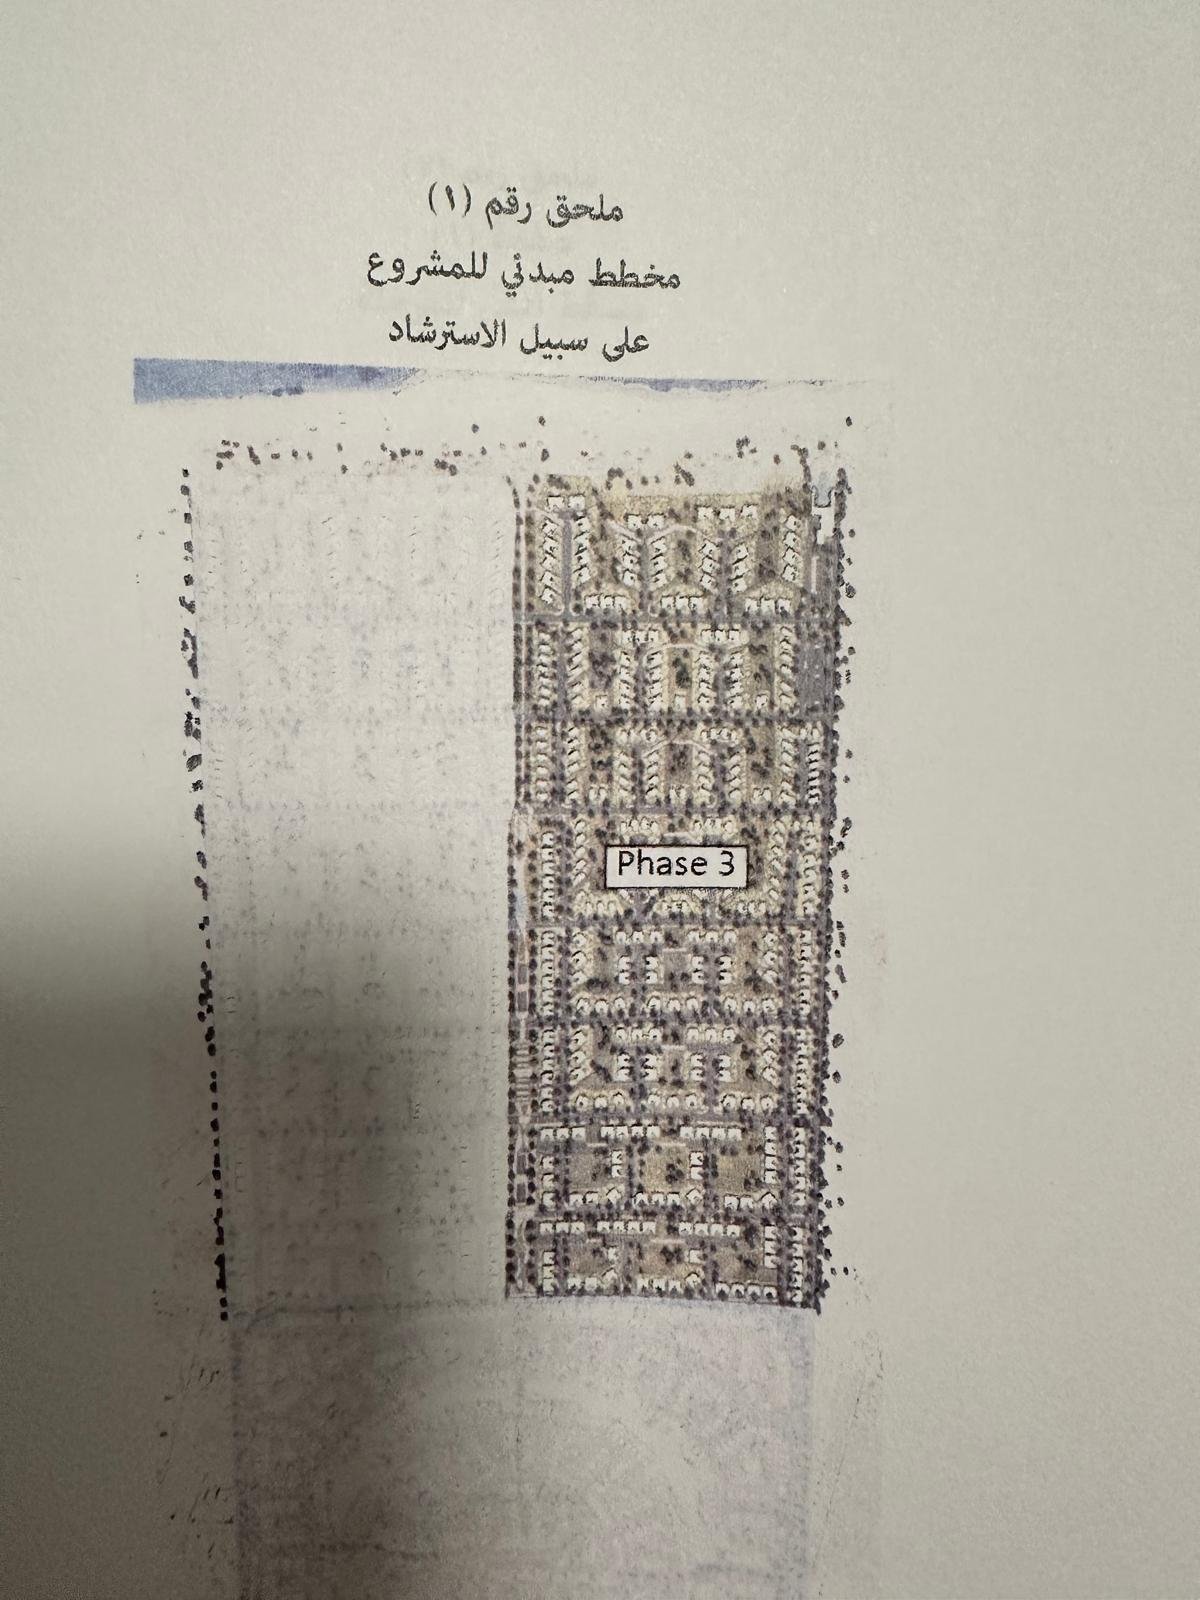 ملحق رقم (١)
مخطط مبدئي للمشروع
على سبيل الاسترشاد
Phase 3